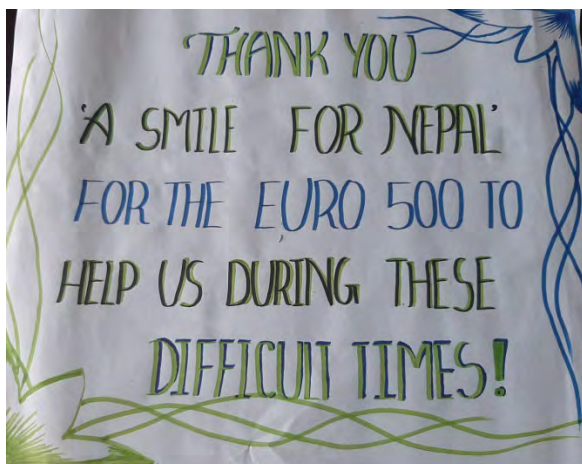 THANK YOU
'A SMILE FOR NEPAL'
FOR THE EURO 500 TO
HELP US DURING THESE
DIFFICULT TIMES!